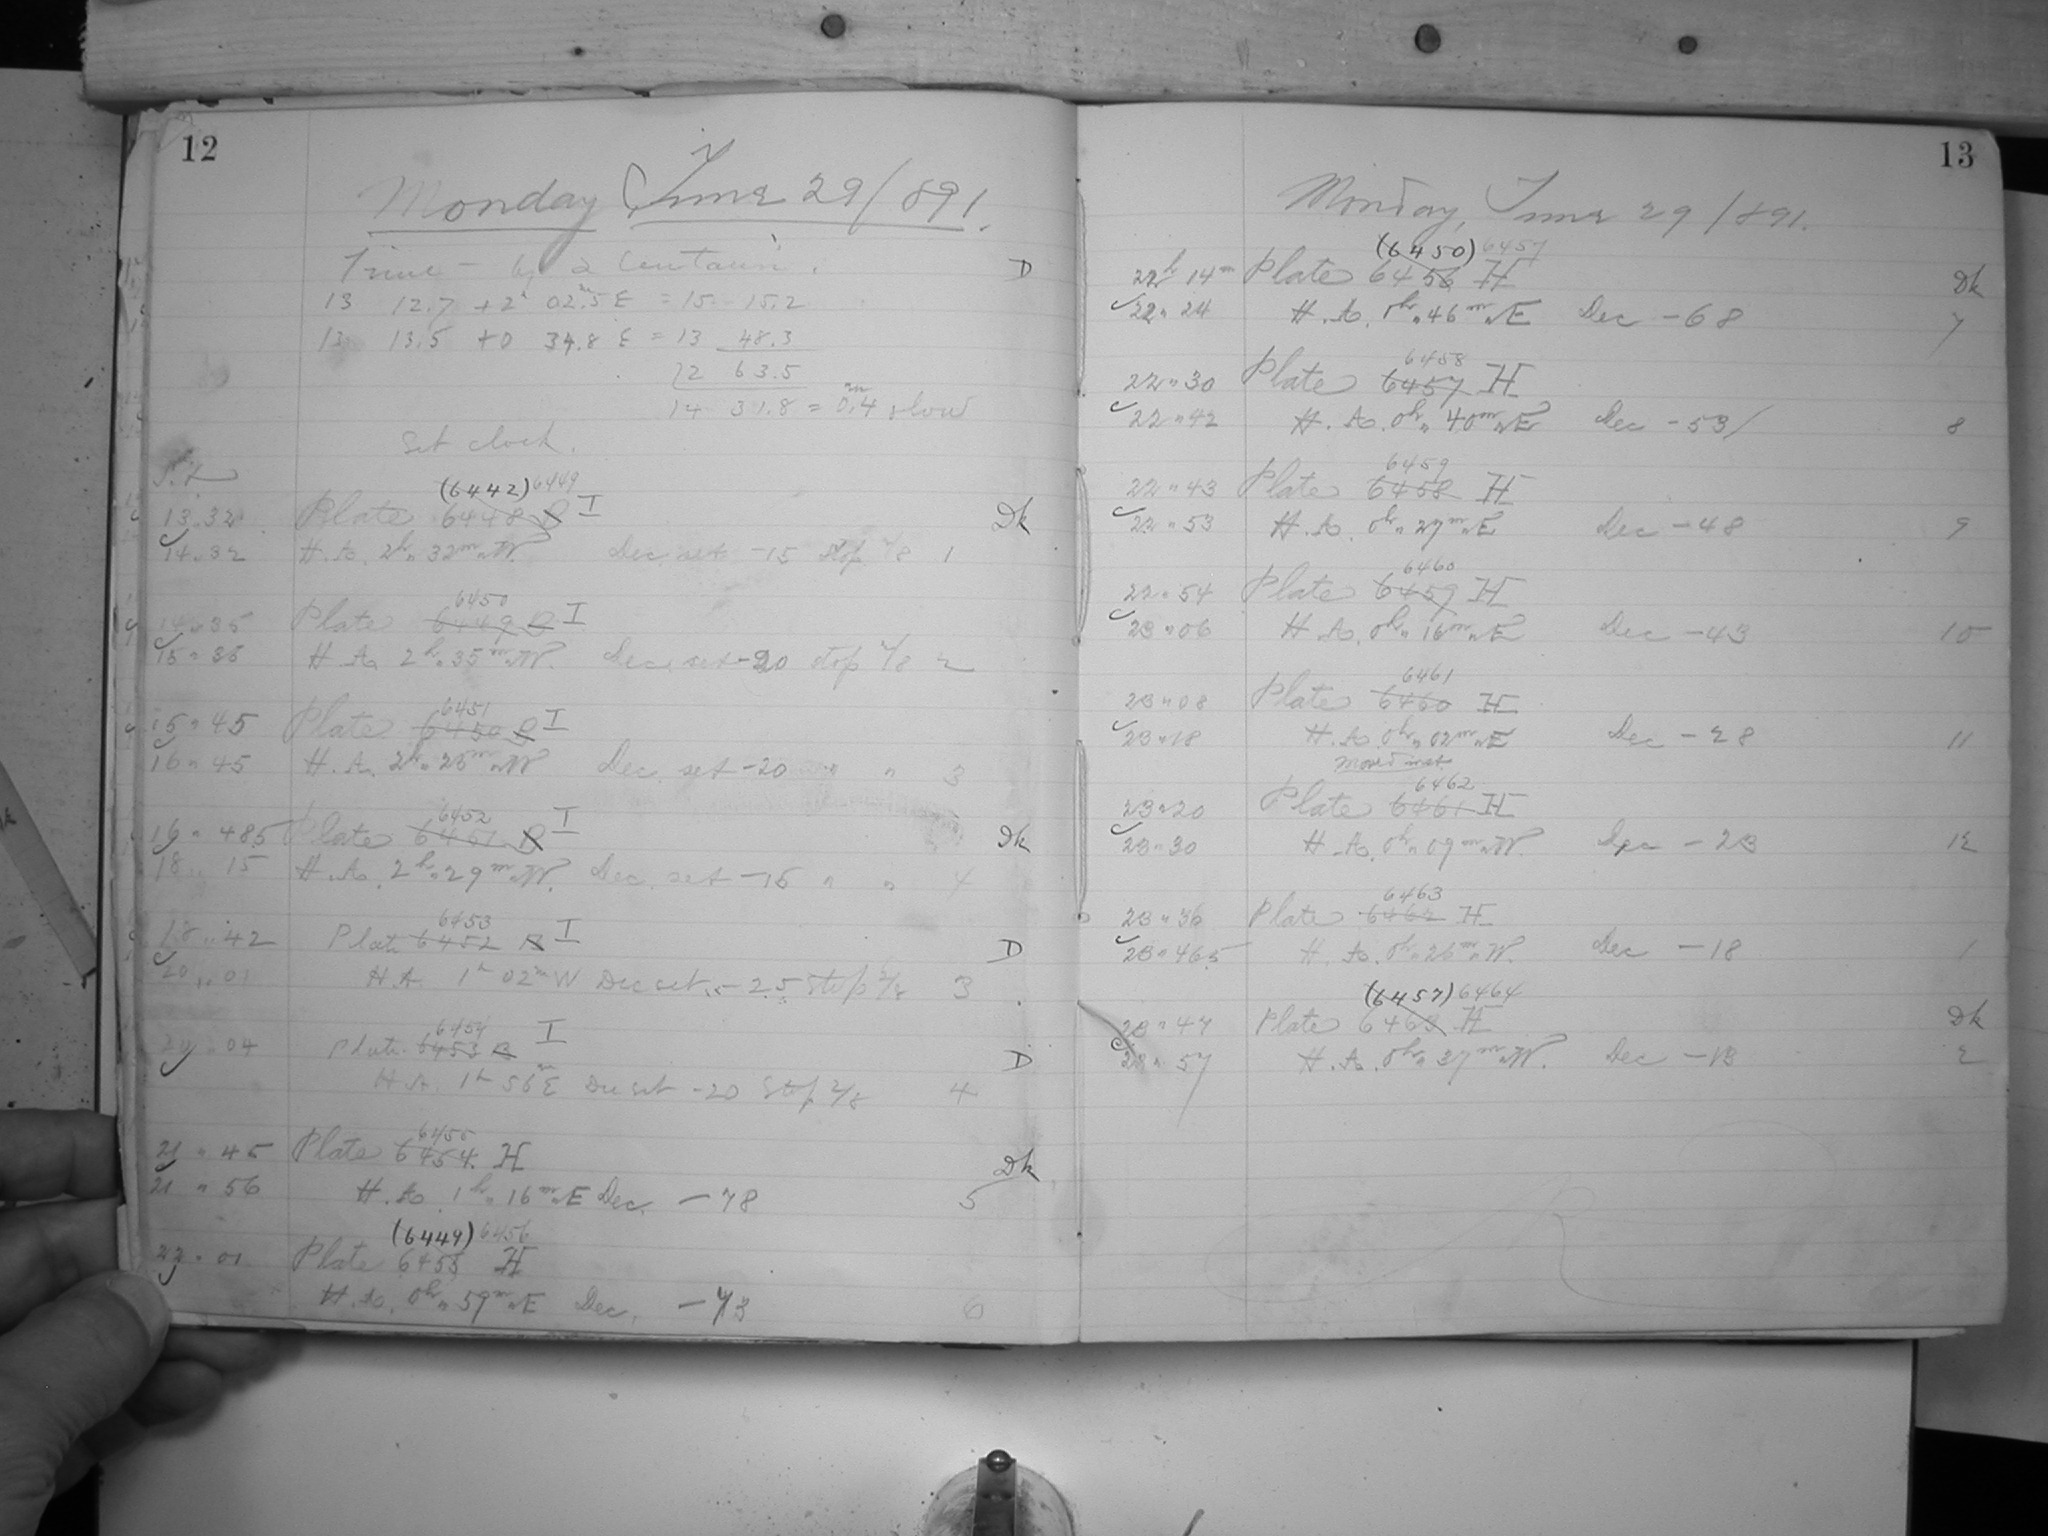 12
Monday June 29/891.
Time - by α Centauri. D
13 12.7 + 2 02.5 E = 15 - 15.2
13 13.5 + 0 34.8 E = 13 48.3
2 63.5
14 31.8 = 0.4 slow
Set clock.
S.T.
(6442) 6449
13.32 Plate 6448 B I Dk
14.32 H.A. 2h 32m W. Dec. set -15 stop 4/8 1
6450
14.35 Plate 6449 B I
15.35 H.A. 2h 35m W. Dec. set -20 stop 4/8 2
6451
15 " 45 Plate 6450 B I
16 " 45 H.A. 2h 25m W Dec. set -20 " " 3
6452
16 " 48.5 Plate 6451 B I Dk
18 " 15 H.A. 2h 29m W. Dec. set -15 " " 4
6453
18 " 42 Plate 6452 B I D
20 " 01 H.A. 1h 02m W Dec set -25 Stop 4/8 3
6454
20 " 04 Plate 6453 B I D
H.A. 1h 56m E Dec set -20 Stop 4/8 4
6455
21 " 45 Plate 6454 H Dk
21 " 56 H.A. 1h 16m E Dec. -78 5
(6449) 6456
22 " 01 Plate 6455 H
H.A. 0h 59m E Dec. -73 6
13
Monday, June 29/891.
(6450) 6457
22h 14m Plate 6456 H Dk
22 " 24 H.A. 0h 46m E Dec -68 7
6458
22 " 30 Plate 6457 H
22 " 42 H.A. 0h 40m E Dec -53 8
6459
22 " 43 Plate 6458 H
22 " 53 H.A. 0h 27m E Dec -48 9
6460
22 " 54 Plate 6459 H
23 " 06 H.A. 0h 16m E Dec -43 10
6461
23 " 08 Plate 6460 H
23 " 18 H.A. 0h 02m E Dec -28 11
Moved inst.
6462
23 " 20 Plate 6461 H
23 " 30 H.A. 0h 09m W. Dec -23 12
6463
23 " 36 Plate 6462 H
23 " 46.5 H.A. 0h 26m W. Dec -18 1
(6457) 6464
23 " 47 Plate 6463 H Dk
23 " 57 H.A. 0h 37m W. Dec -13 2